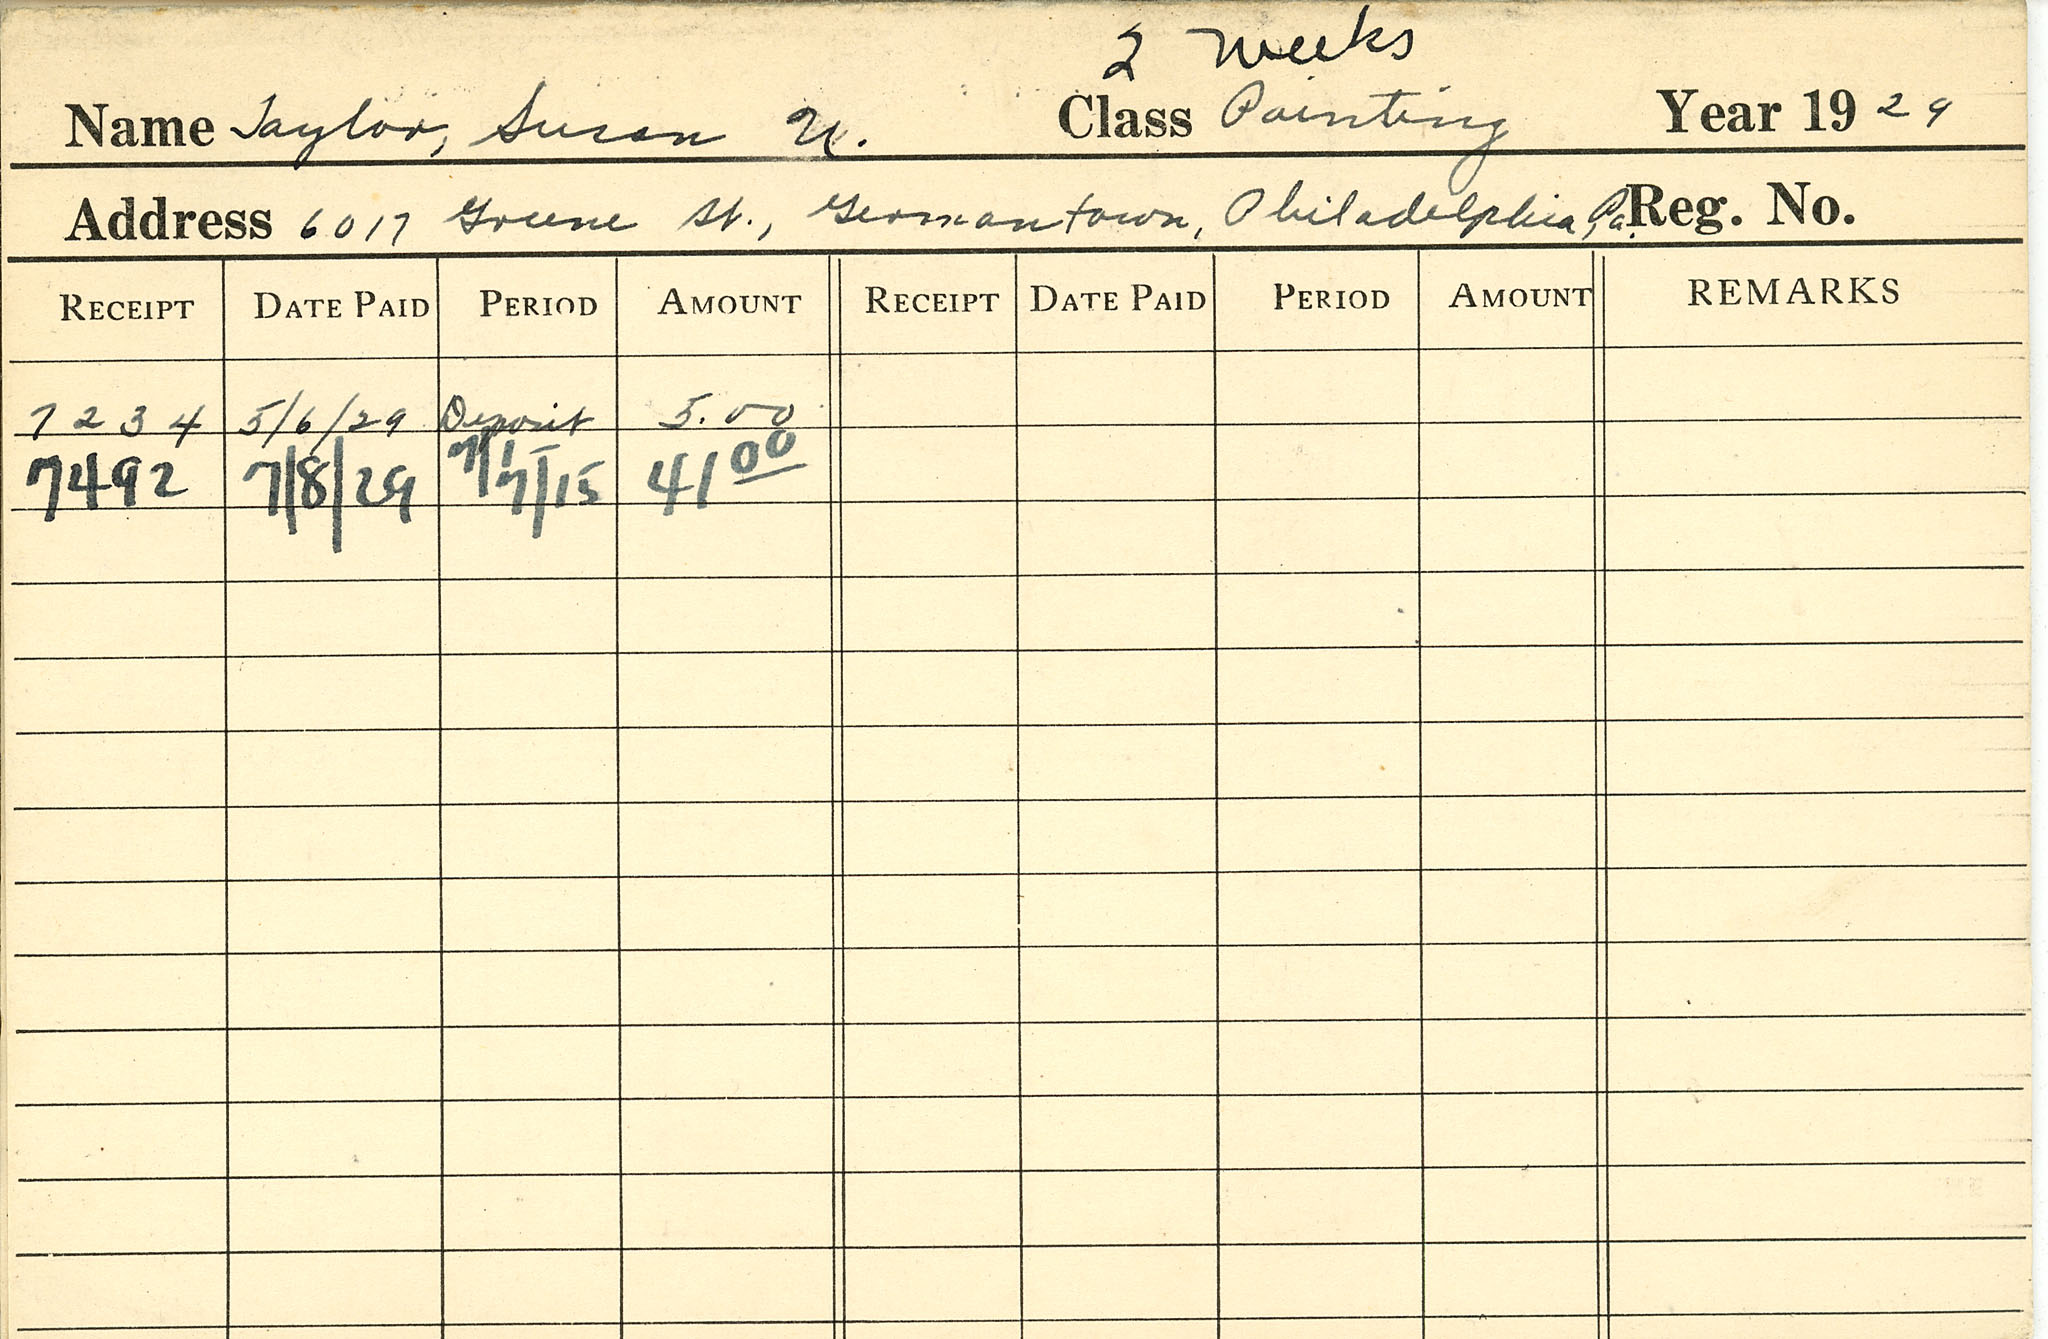 2 weeks
Name Taylor, Susan U. Class Painting Year 19 29
Address 6017 Greene St., Germantown, Philadelphia, Pa. Reg. No.
RECEIPT DATE PAID PERIOD AMOUNT RECEIPT DATE PAID PERIOD AMOUNT REMARKS
7234 5/6/29 Deposit 5.00
7492 7/8/29 7/1 - 7/15 41 00